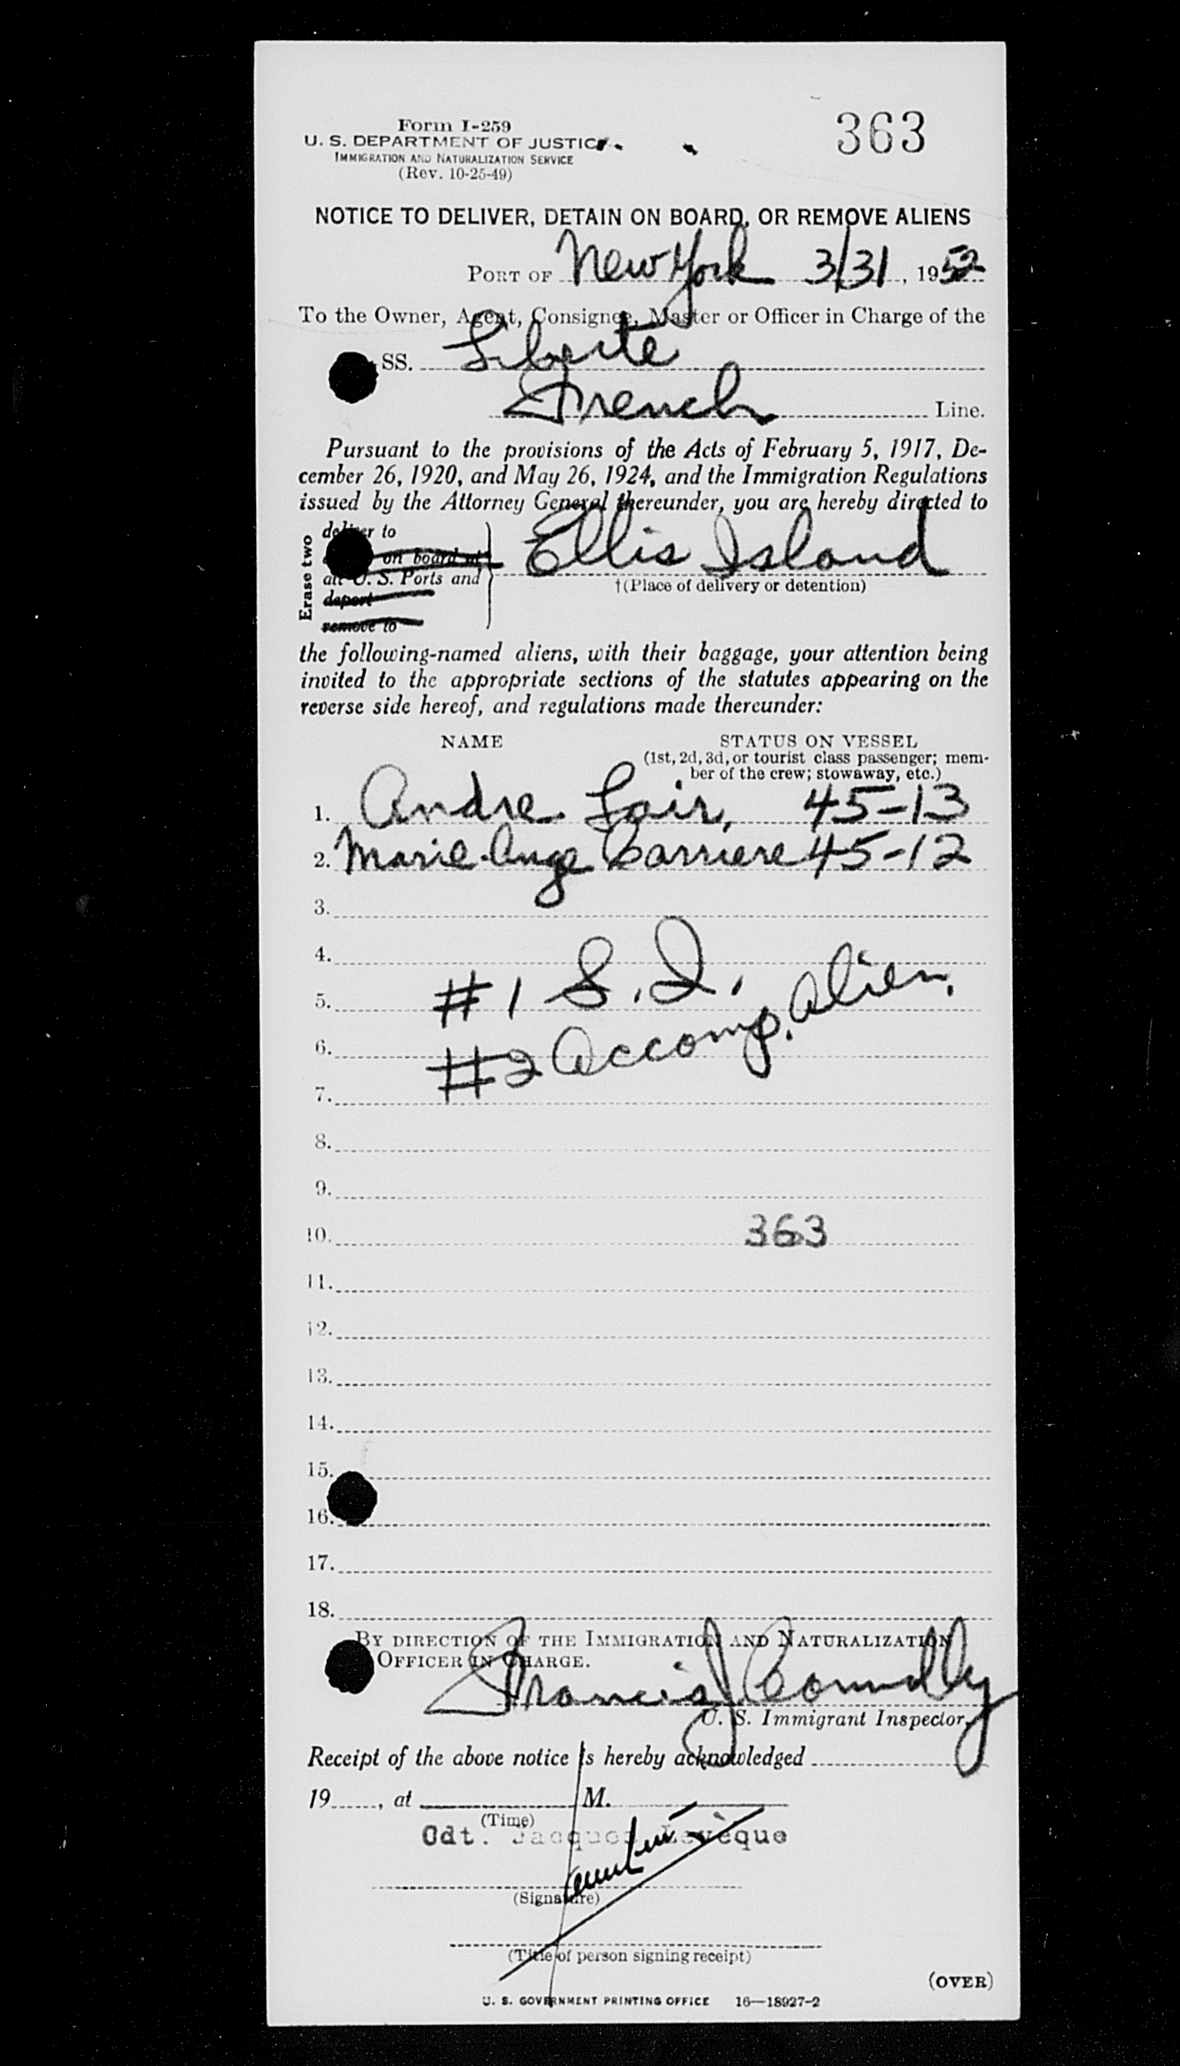 Form I-259
363
U. S. DEPARTMENT OF JUSTICE
IMMIGRATION AND NATURALIZATION SERVICE
(Rev. 10-25-49)
NOTICE TO DELIVER, DETAIN ON BOARD, OR REMOVE ALIENS
PORT OF New York 3/31, 1952
To the Owner, Agent, Consignee, Master or Officer in Charge of the
SS. Liberte
French Line.
Pursuant to the provisions of the Acts of February 5, 1917, De-
cember 26, 1920, and May 26, 1924, and the Immigration Regulations
issued by the Attorney General thereunder, you are hereby directed to
Erase two
deliver to
on board at
all U. S. Ports and
deport
remove to
Ellis Island
†(Place of delivery or detention)
the following-named aliens, with their baggage, your attention being
invited to the appropriate sections of the statutes appearing on the
reverse side hereof, and regulations made thereunder:
NAME STATUS ON VESSEL
(1st, 2d, 3d, or tourist class passenger; mem-
ber of the crew; stowaway, etc.)
1. Andre Lair, 45-13
2. Marie-Ange Carriere 45-12
3.
4.
5. #1 S.I.
6. #2 Accomp. Alien.
7.
8.
9.
10. 363
11.
12.
13.
14.
15.
16.
17.
18.
BY DIRECTION OF THE IMMIGRATION AND NATURALIZATION
OFFICER IN CHARGE.
Francis J Connolly
U. S. Immigrant Inspector.
Receipt of the above notice is hereby acknowledged
19, at M.
(Time)
Cdt. Jacques Leveque
(Signature)
(Title of person signing receipt)
(OVER)
U. S. GOVERNMENT PRINTING OFFICE 16—18927-2